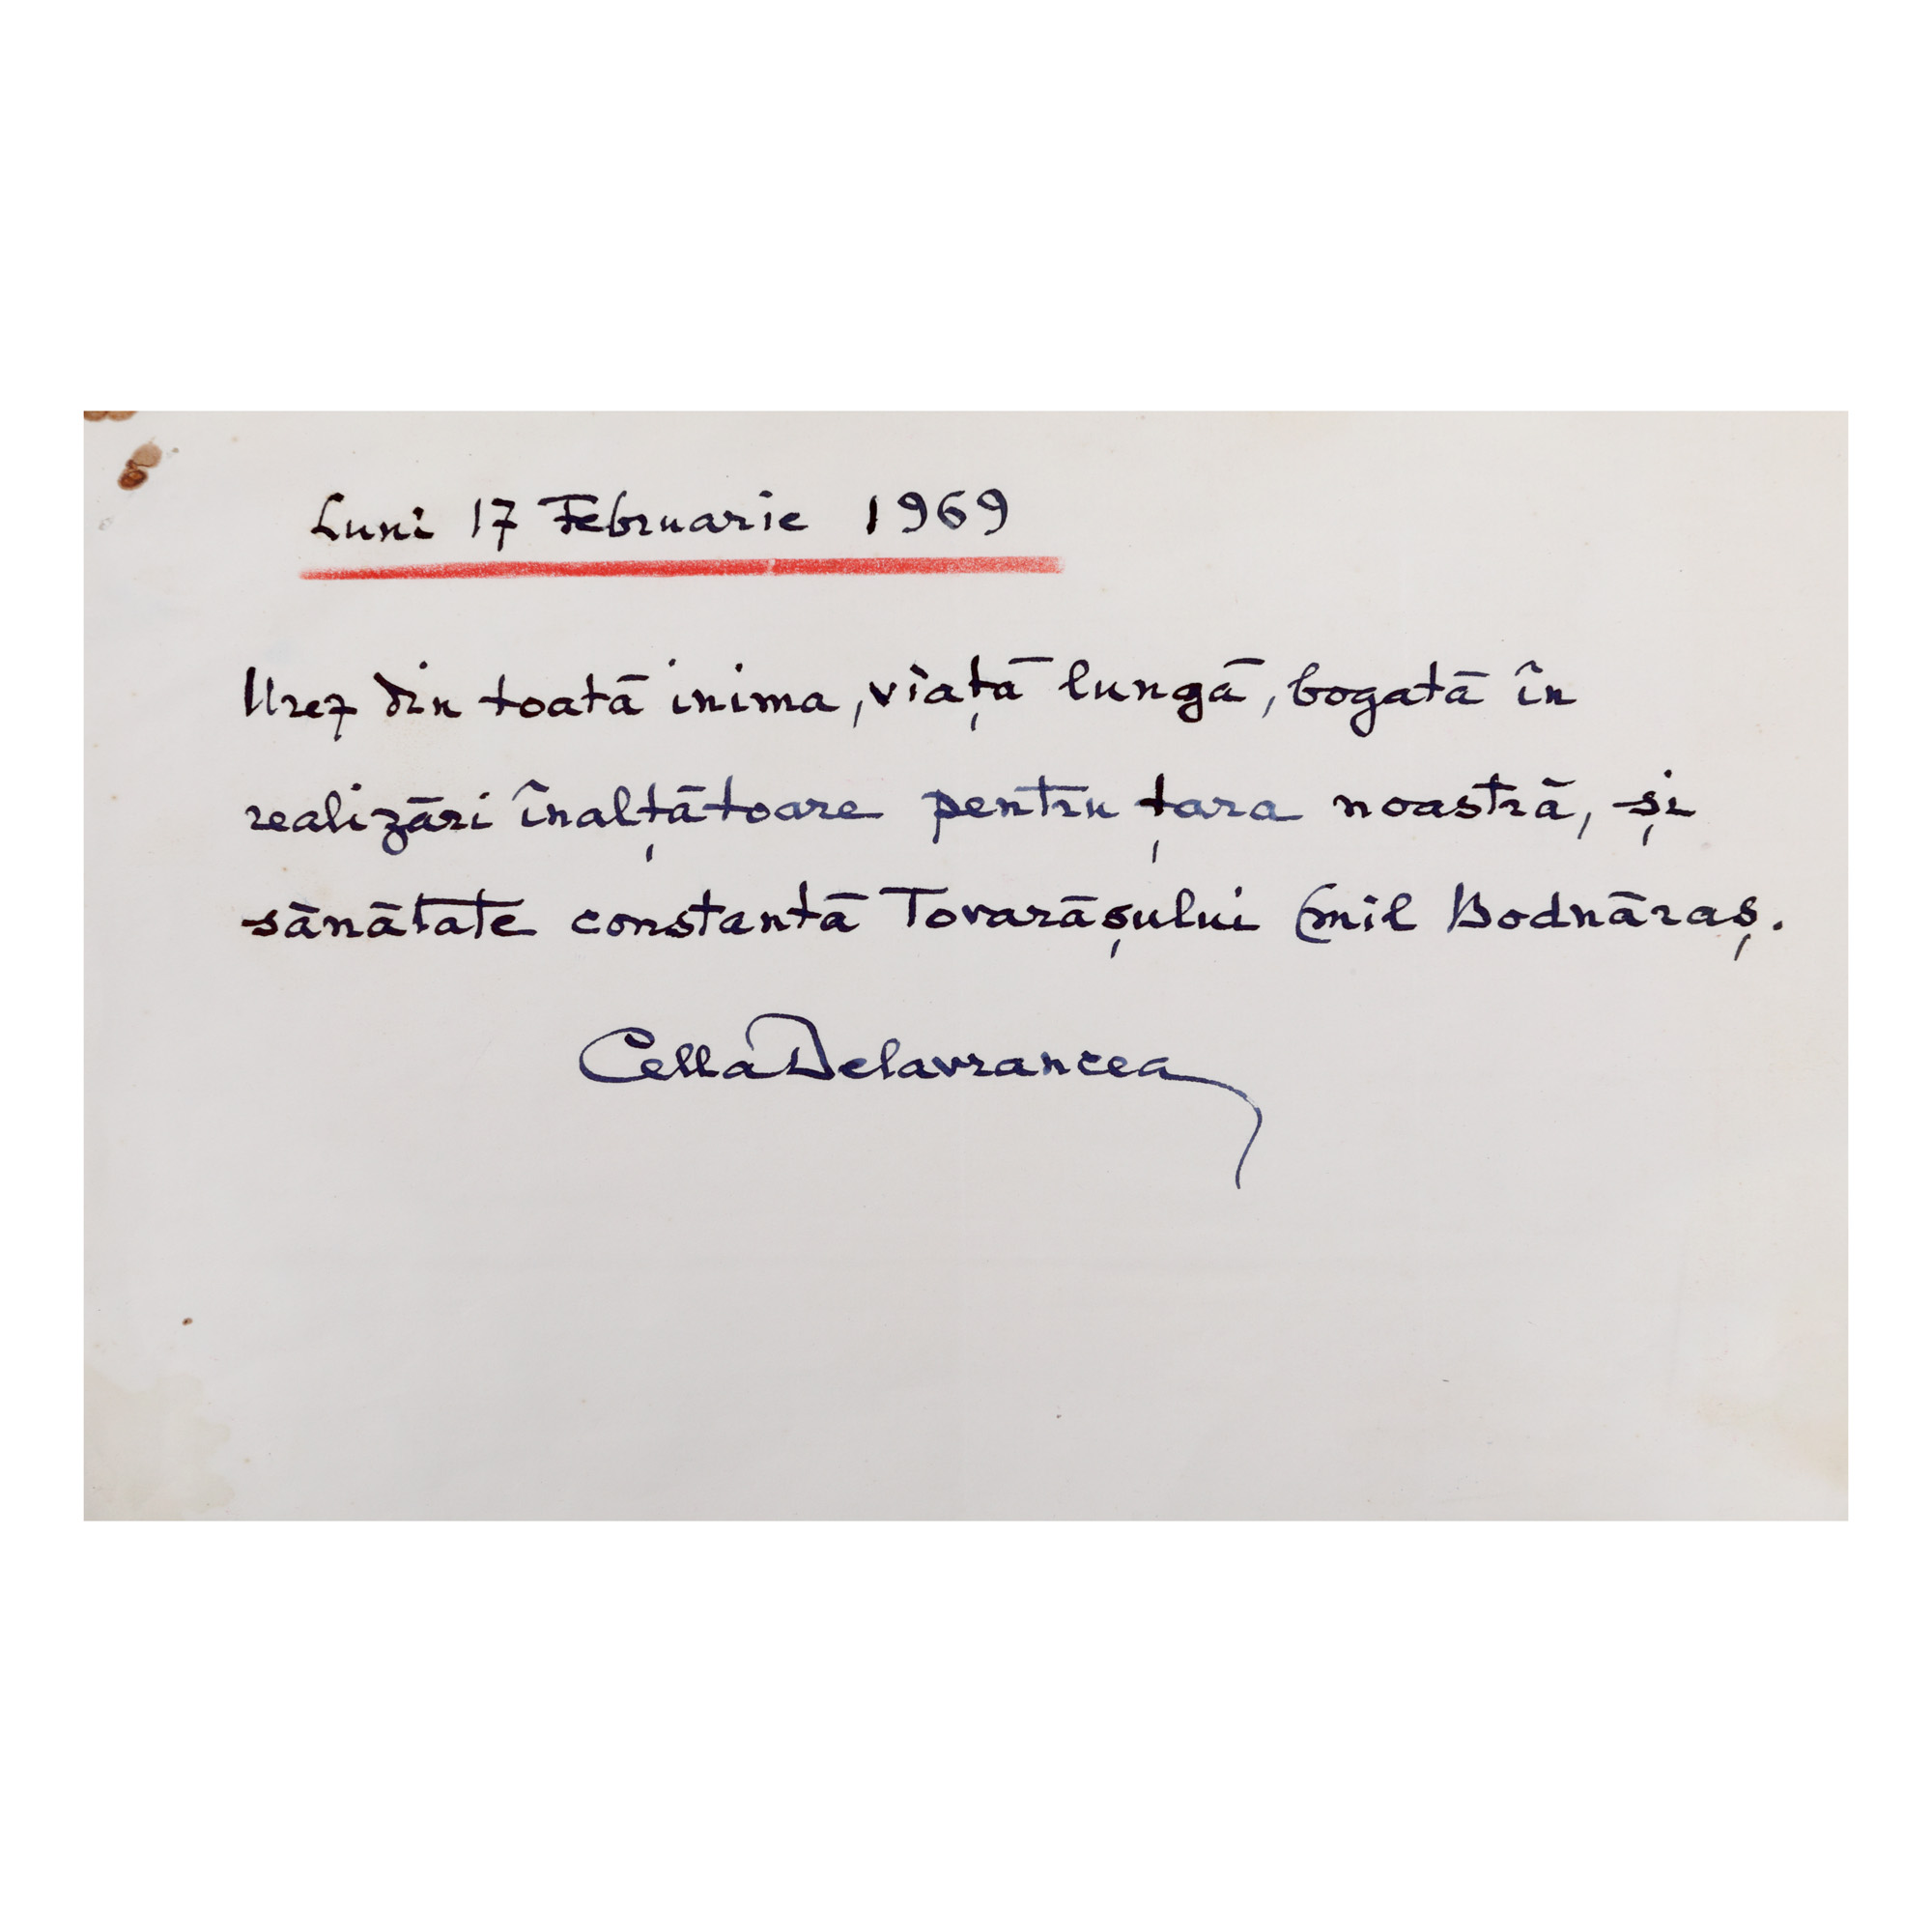 Luni 17 Februarie 1969
Urez din toată inima, viață lungă, bogată în
realizări înalțătoare pentru țara noastră, și
sănătate constantă Tovarășului Emil Bodnăraș.
Cella Delavrancea